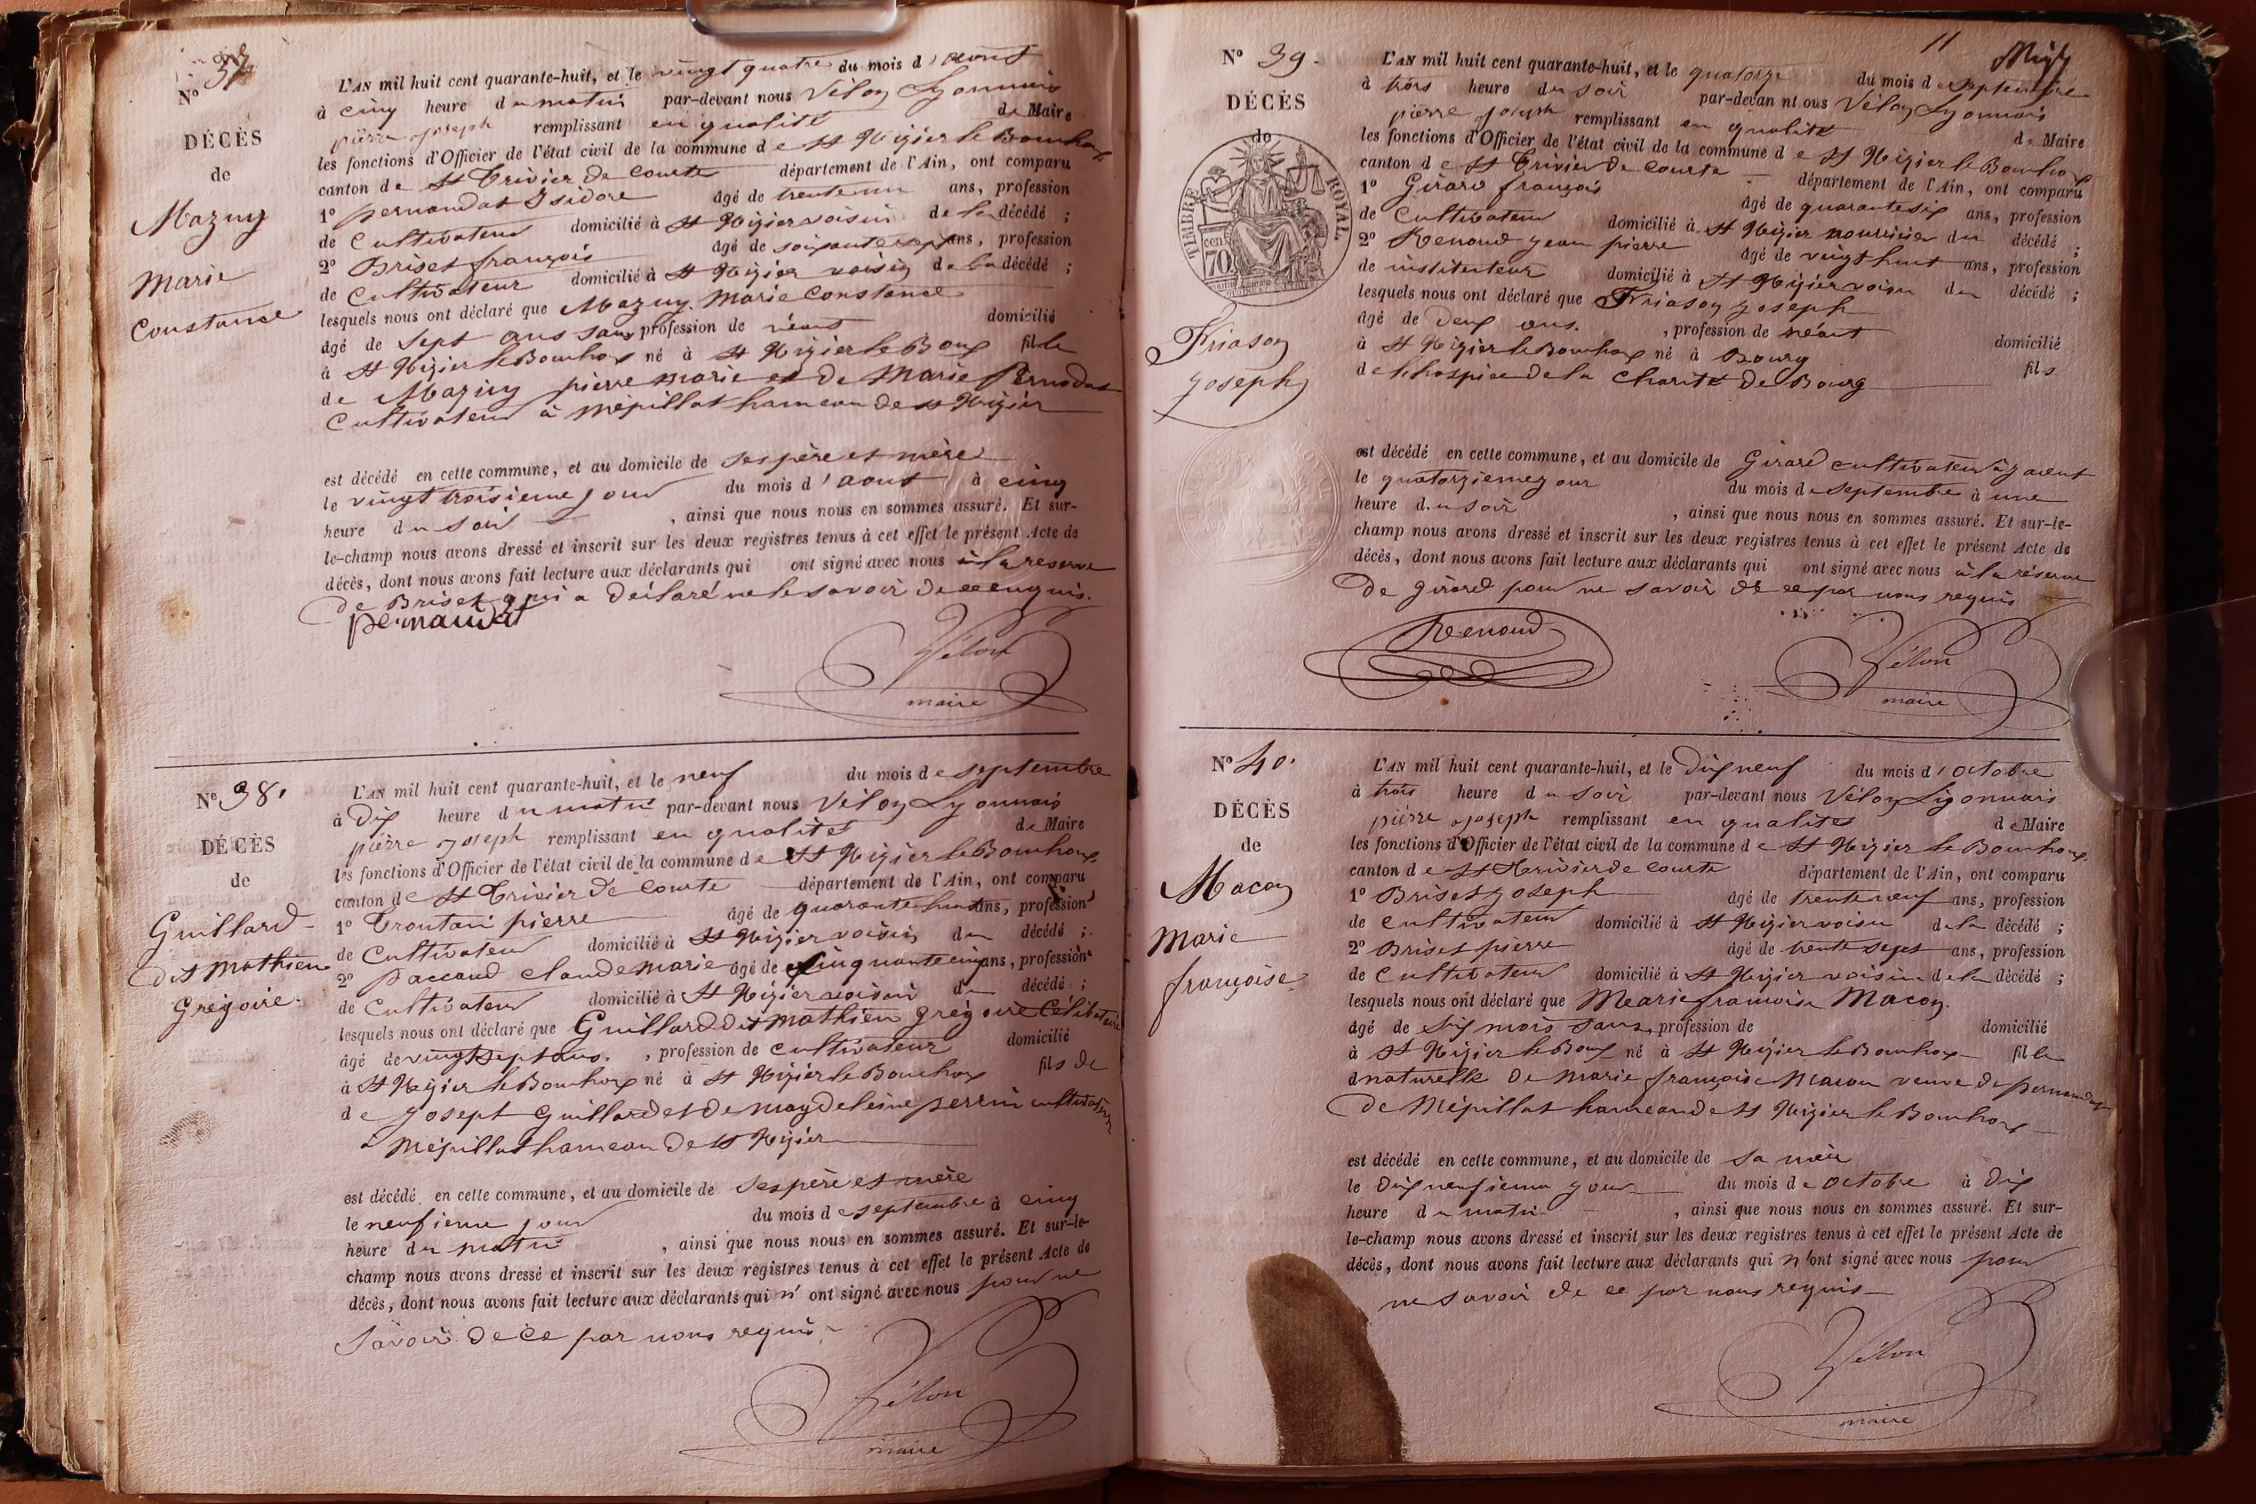 Nº 37
DÉCÈS
de
Mazuy
Marie
Constance
L'AN mil huit cent quarante-huit, et le vingt quatre du mois d'aout
à cinq heure du matin par-devant nous Vélon Lyonnais
pierre joseph remplissant en qualité de Maire
les fonctions d'Officier de l'état civil de la commune de St Nizier le Bouchoux
canton de St Trivier de Courte département de l'Ain, ont comparu
1º pernaudat Isidore âgé de trente un ans, profession
de Cultivateur domicilié à St Nizier voisin de la décédé ;
2º Briset françois âgé de soixante sept ans, profession
de Cultivateur domicilié à St Nizier voisin de la décédé ;
lesquels nous ont déclaré que Mazuy Marie Constance
âgé de sept ans sans profession de néant domicilié
à St Nizier le Bouchoux né à St Nizier le Boux fille
de Mazuy pierre marie et de Marie
Cultivateur à Mépillat hameau de St Nizier
est décédé en cette commune, et au domicile de ses père et mère
le vingt troisieme jour du mois d'aout à cinq
heure du soir , ainsi que nous nous en sommes assuré. Et sur-
le-champ nous avons dressé et inscrit sur les deux registres tenus à cet effet le présent Acte de
décès, dont nous avons fait lecture aux déclarants qui ont signé avec nous à la réserve
de Briset qui a déclaré ne le savoir de ce enquis.
pernaudat
Vélon
maire
Nº 38.
DÉCÈS
de
Guillard
dit Mathieu
Grégoire.
L'AN mil huit cent quarante-huit, et le neuf du mois de septembre
à Dix heure du matin par-devant nous Vélon Lyonnais
pierre joseph remplissant en qualité de Maire
les fonctions d'Officier de l'état civil de la commune de St Nizier le Bouchoux
canton de St Trivier de Courte département de l'Ain, ont comparu
1º pierre âgé de quarante huit ans, profession
de Cultivateur domicilié à St Nizier voisin du décédé ;
2º paccaud claude marie âgé de cinquante cinq ans, profession
de Cultivateur domicilié à St Nizier voisin du décédé ;
lesquels nous ont déclaré que Guillard dit mathieu grégoire Célibataire
âgé de vingt sept ans. , profession de cultivateur domicilié
à St Nizier le Bouchoux né à St Nizier le Bouchoux fils de
de Joseph guillard et de magdeleine perrin cultivateur
a Mépillat hameau de St Nizier
est décédé en cette commune, et au domicile de ses père et mère
le neufieme jour du mois de septembre à cinq
heure du matin , ainsi que nous nous en sommes assuré. Et sur-le-
champ nous avons dressé et inscrit sur les deux registres tenus à cet effet le présent Acte de
décès, dont nous avons fait lecture aux déclarants qui n'ont signé avec nous pour ne
savoir de ce par nous requis.
Vélon
maire
11
Nº 39.
DÉCÈS
de
TIMBRE ROYAL
70 cent.
Friason
joseph
L'AN mil huit cent quarante-huit, et le quatorze du mois de septembre
à trois heure du soir par-devant nous Vélon Lyonnais
pierre joseph remplissant en qualité de Maire
les fonctions d'Officier de l'état civil de la commune de St Nizier le Bouchoux
canton de St Trivier de Courte département de l'Ain, ont comparu
1º Girard françois âgé de quarante six ans, profession
de Cultivateur domicilié à St Nizier nourricier du décédé ;
2º Renaud jean pierre âgé de vingt huit ans, profession
de instituteur domicilié à St Nizier voisin du décédé ;
lesquels nous ont déclaré que Friason joseph
âgé de deux ans. , profession de néant domicilié
à St Nizier le Bouchoux né à Bourg fils
de l'hospice de la charité de Bourg
est décédé en cette commune, et au domicile de Girard cultivateur
le quatorzieme jour du mois de septembre à une
heure du soir , ainsi que nous nous en sommes assuré. Et sur-le-
champ nous avons dressé et inscrit sur les deux registres tenus à cet effet le présent Acte de
décès, dont nous avons fait lecture aux déclarants qui ont signé avec nous à la réserve
de girard pour ne savoir de ce par nous requis
Renoud
Vélon
maire
Nº 40.
DÉCÈS
de
Macon
Marie
françoise
L'AN mil huit cent quarante-huit, et le dix neuf du mois d'octobre
à trois heure du soir par-devant nous Vélon Lyonnais
pierre joseph remplissant en qualité de Maire
les fonctions d'Officier de l'état civil de la commune de St Nizier le Bouchoux
canton de St Trivier de courte département de l'Ain, ont comparu
1º Briset joseph âgé de trente neuf ans, profession
de cultivateur domicilié à St Nizier voisin de la décédé ;
2º Briset pierre âgé de trente sept ans, profession
de Cultivateur domicilié à St Nizier voisin de la décédé ;
lesquels nous ont déclaré que Marie françoise Macon.
âgé de six mois sans profession de domicilié
à St Nizier le Boux né à St Nizier le Bouchoux fille
naturelle de Marie françoise Macon veuve de
de Mépillat hameau de St Nizier le Bouchoux
est décédé en cette commune, et au domicile de sa mère
le dix neufieme jour du mois de octobre à dix
heure du matin , ainsi que nous nous en sommes assuré. Et sur-
le-champ nous avons dressé et inscrit sur les deux registres tenus à cet effet le présent Acte de
décès, dont nous avons fait lecture aux déclarants qui n'ont signé avec nous pour
ne savoir de ce par nous requis
Vélon
maire